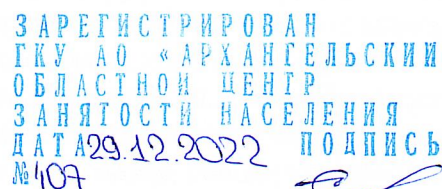 ЗАРЕГИСТРИРОВАН
ГКУ АО «АРХАНГЕЛЬСКИЙ
ОБЛАСТНОЙ ЦЕНТР
ЗАНЯТОСТИ НАСЕЛЕНИЯ
ДАТА 29.12.2022 ПОДПИСЬ
№ 407